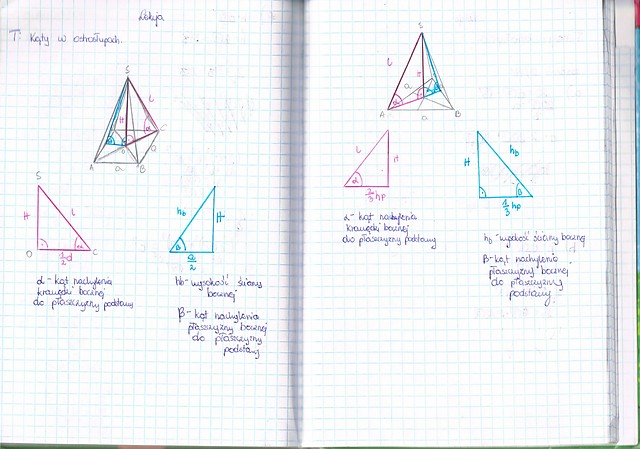 Lekcja
T: Kąty w ostrosłupach.
S
l
H
α
β
C
A
a
B
a
S
H
l
α
O
½d
C
hb
H
β
a/2
α - kąt nachylenia
krawędzi bocznej
do płaszczyzny podstawy
hb - wysokość ściany
bocznej
β - kąt nachylenia
płaszczyzny bocznej
do płaszczyzny
podstawy
S
l
H
a
α
β
A
a
B
l
H
α
⅔hp
H
hb
β
⅓hp
α - kąt nachylenia
krawędzi bocznej
do płaszczyzny podstawy
hb - wysokość ściany bocznej
β - kąt nachylenia
płaszczyzny bocznej
do płaszczyzny
podstawy.